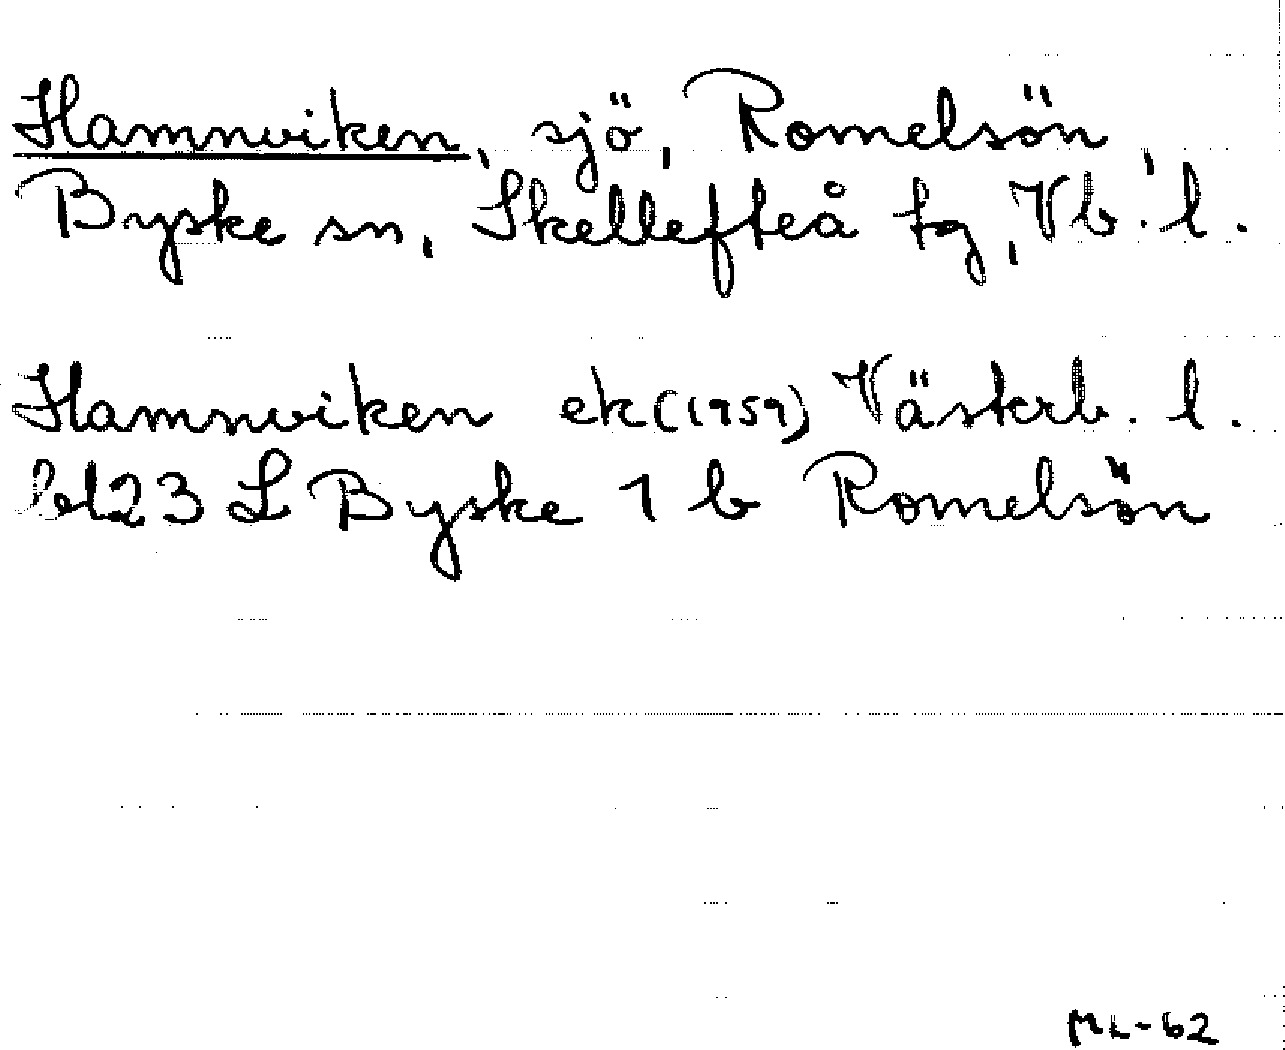 Hamnviken, sjö, Romelsön,
Byske sn, Skellefteå tg, Vb. l.
Hamnviken ek (1959) Västerb. l.
bl 23 L Byske 1 b Romelsön
ML-62